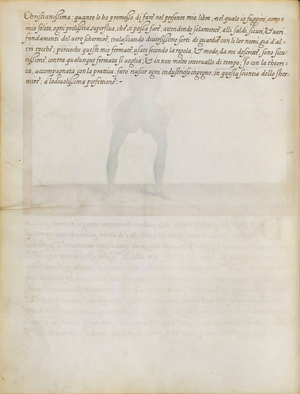 Christianissima, quanto le ho promesso di fare nel presente mio libro, nel quale io fuggirò, come è
mio solito, ogni prolissità superflua, che si possa fare, attendendo solamente alli saldi, sicuri, & veri
fondamenti del vero schermire, tralasciando diversissime sorti di guardie con li lor nomi già d'al-
tri tocche; percioche queste mie fermate, usate secondo la regola, & modo, da me descritto, sono sicu-
rissime contra qualunque fermata si voglia; & in non molto intervallo di tempo, Io con la theori-
ca, accompagnata con la prattica, farò riuscir ogni industrioso ingegno, in questa scientia dello scher-
mire, a lodevolissima perfettione.